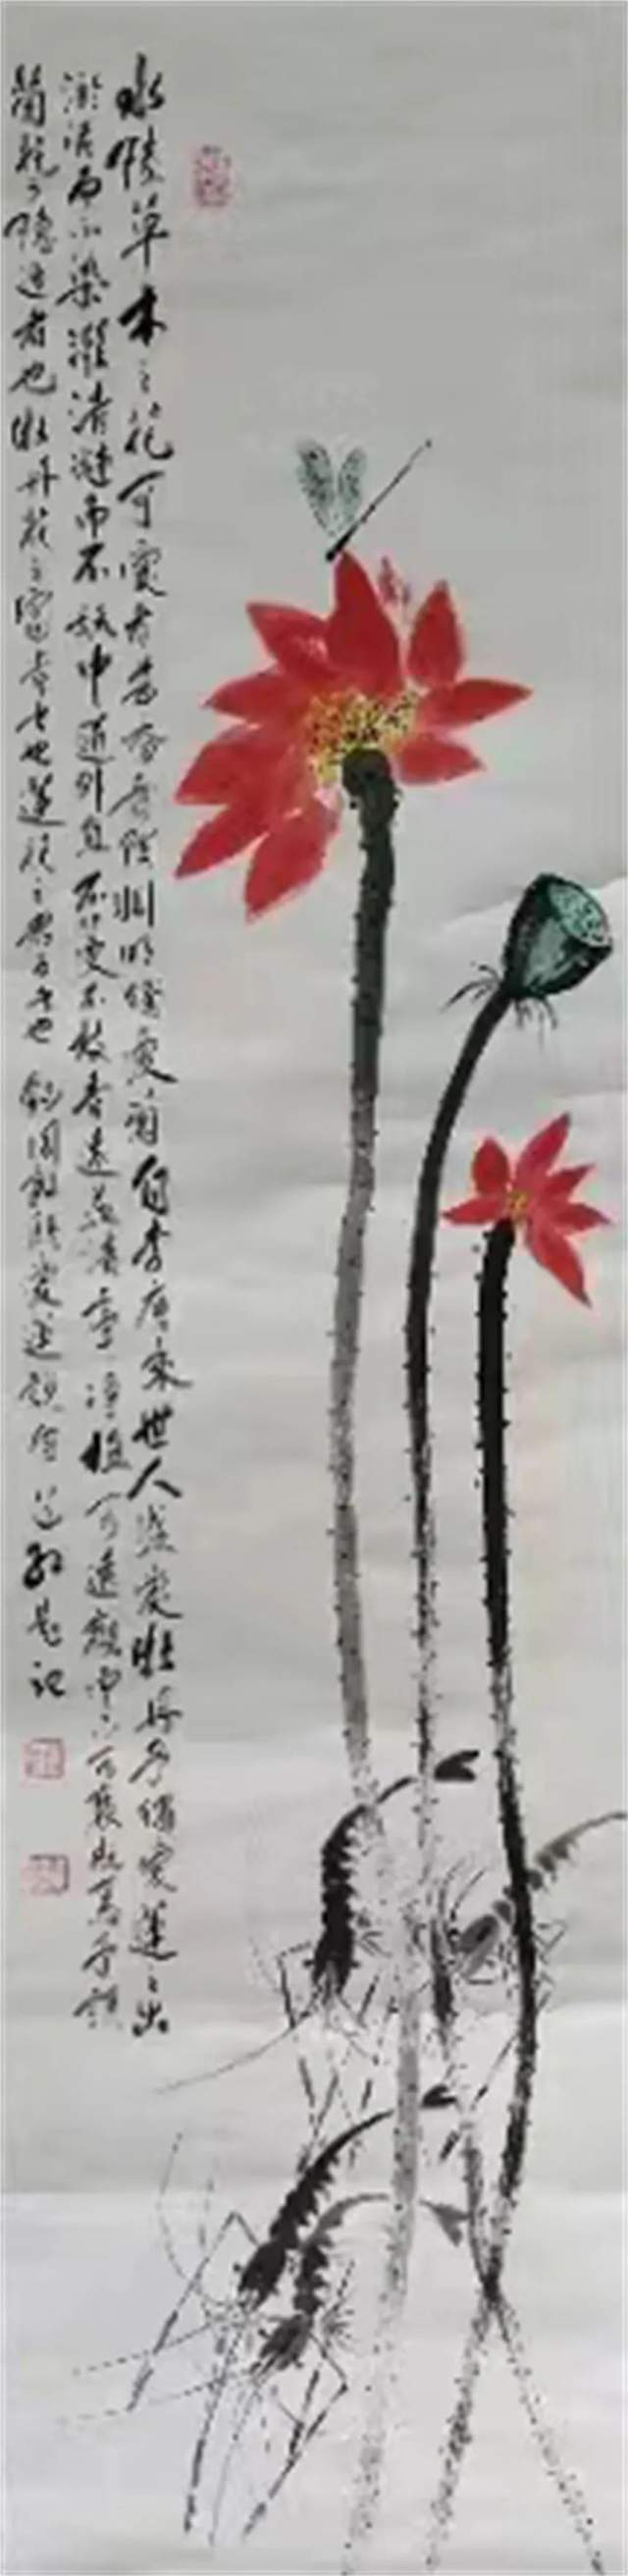 水陸草木之花可愛者甚蕃晉陶淵明獨愛菊自李唐來世人盛愛牡丹予獨愛蓮之出
淤泥而不染濯清漣而不妖中通外直不蔓不枝香遠益清亭亭淨植可遠觀而不可褻玩焉予謂
菊花之隱逸者也牡丹花之富貴者也蓮花之君子者也 錄周敦頤愛蓮說 題記